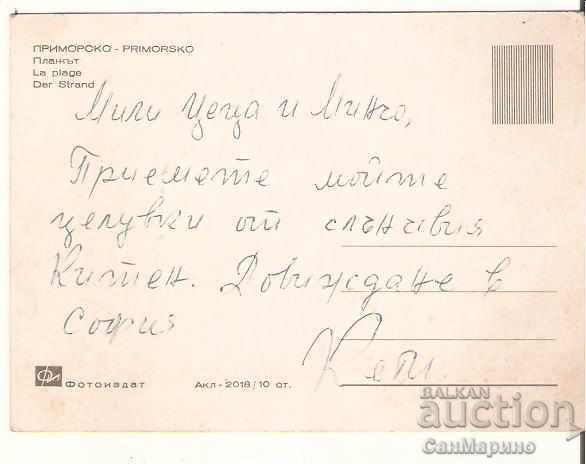 ПРИМОРСКО - PRIMORSKO
Плажът
La plage
Der Strand
Мили Цеца и Минчо,
Приемете моите
целувки от слънчевия
Китен. Довиждане в
София
Кети
Фотоиздат
Акл - 2018/10 ст.
BALKAN
auction
СанМарино